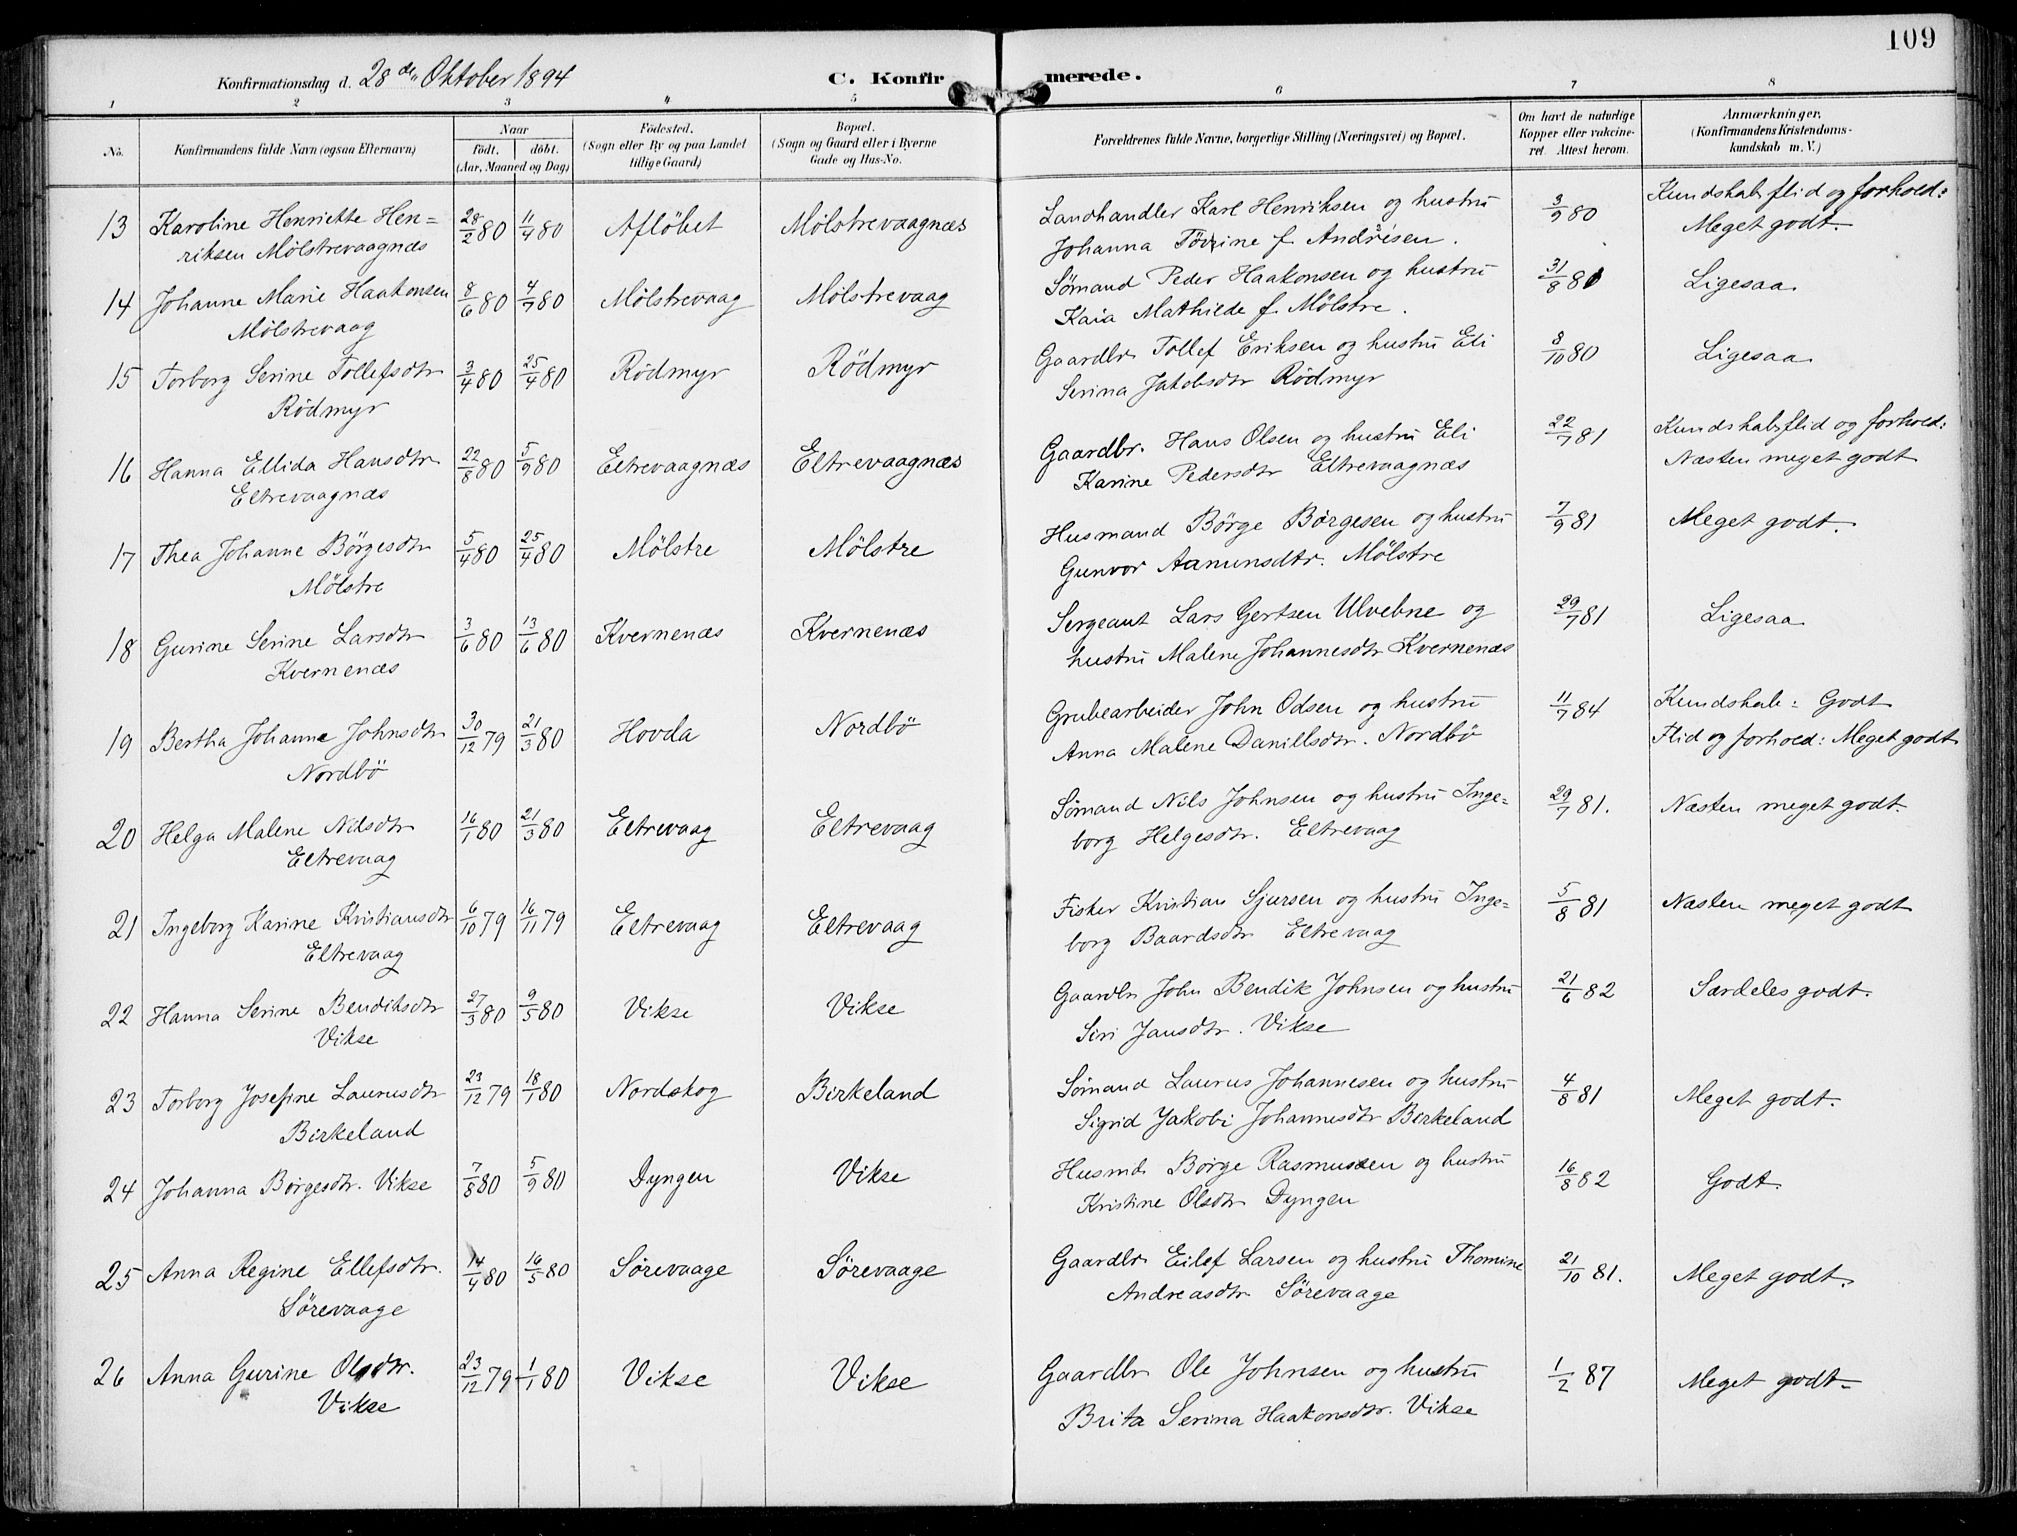 109
Konfirmationsdag d. 28de Oktober 1894
C. Konfirmerede.
1 2 3 4 5 6 7 8
No. Konfirmandens fulde Navn (ogsaa Efternavn) Naar født. døbt. (Aar, Maaned og Dag) Fødested. (Sogn eller By og paa Landet tillige Gaard) Bopæl. (Sogn og Gaard eller i Byerne Gade og Hus-No. Forældrenes fulde Navne, borgerlige Stilling (Næringsvei) og Bopæl. Om havt de naturlige Kopper eller vakcineret. Attest herom. Anmærkninger, (Konfirmandens Kristendomskundskab m. V.)
13 Karoline Henriette Hen= 28/2 80 11/4 80 Afløbet Mølstrevaagnæs Landhandler Karl Henriksen og hustru 3/9 80 Kundskab flid og forhold:
riksen Mølstrevaagnæs Johanna f. Andrésen. Meget godt.
14 Johanne Marie Haakonsen 8/6 80 4/7 80 Mølstrevaag Mølstrevaag Sømand Peder Haakonsen og hustru 31/8 81 Ligesaa
Mølstrevaag Kaia Mathilde f. Mølstre.
15 Torborg Serine Tollefsdtr 3/4 80 25/4 80 Rödmyr Rödmyr Gaardbr Tollef Eriksen og hustru Eli 8/10 80 Ligesaa
Rödmyr Serina Jakobsdtr Rödmyr
16 Hanna Ellida Hansdtr 22/8 80 5/9 80 Eltrevaagnæs Eltrevaagnæs Gaardbr. Hans Olsen og hustru Eli 22/7 81 Kundskab flid og forhold:
Eltrevaagnæs Karine Pedersdtr Eltrevaagnæs Næsten meget godt
17 Thea Johanne Börgesdtr 5/4 80 25/4 80 Mölstre Mölstre Husmand Börge Börgesen og hustru 7/9 81 Meget godt.
Mölstre Gunvor Aamunsdtr. Mölstre
18 Gurine Serine Larsdtr 3/6 80 13/6 80 Kvernenæs Kvernenæs Sergeant Lars Gertsen Ulvebne og 29/7 81 Ligesaa
Kvernenæs hustru Malene Johannesdtr Kvernenæs
19 Bertha Johanne Johnsdtr 30/12 79 21/3 80 Hovda Nordbö Grubearbeider John Odsen og hustru 11/7 84 Kundskab: Godt
Nordbö Anna Malene Danillsdtr. Nordbö Flid og forhold: Meget godt
20 Helga Malene Nilsdtr 16/1 80 21/3 80 Eltrevaag Eltrevaag Sømand Nils Johnsen og hustru Inge= 29/7 81. Næsten meget godt.
Eltrevaag borg Helgesdtr. Eltrevaag
21 Ingeborg Karine Kristiansdtr 6/10 79 16/11 79 Eltrevaag Eltrevaag Fisker Kristian Sjursen og hustru Inge= 5/8 81 Næsten meget godt
Eltrevaag borg Baardsdtr Eltrevaag
22 Hanna Serine Bendiksdtr 27/3 80 9/5 80 Vikse Vikse Gaardbr John Bendik Johnsen og hustru 21/6 82 Særdeles godt.
Vikse Siri Jansdtr. Vikse
23 Torborg Josefine Laurusdtr 23/12 79 18/1 80 Nordskog Birkeland Sømand Laurus Johannesen og hustru 4/8 81 Meget godt.
Birkeland Sigrid Jakobi Johannesdtr Birkeland
24 Johanna Børgesdtr. Vikse 7/8 80 5/9 80 Dyngen Vikse Husmd. Børge Rasmussen og hustru 16/8 82 Godt.
Kristine Olsdtr Dyngen
25 Anna Regine Ellefsdtr. 14/4 80 16/5 80 Sörevaage Sörevaage Gaardbr Eilef Larsen og hustru Thomine 21/10 81. Meget godt.
Sörevaage Andreasdtr Sörevaage
26 Anna Gurine Olsdtr. 23/12 79 1/1 80 Vikse Vikse Gaardbr Ole Johnsen og hustru 1/2 87 Meget godt.
Vikse Brita Serina Haakonsdtr. Vikse